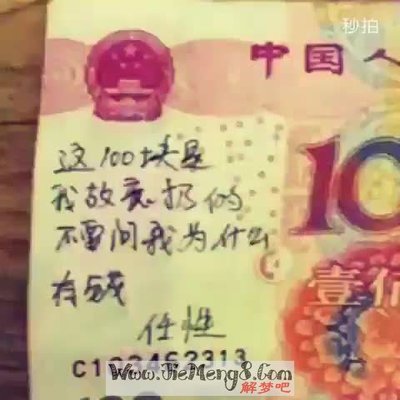 秒拍
中国人
这100块是
我故意扔的
不要问我为什么
有钱
任性
10
壹佰
www.JieMeng8.com
解梦吧